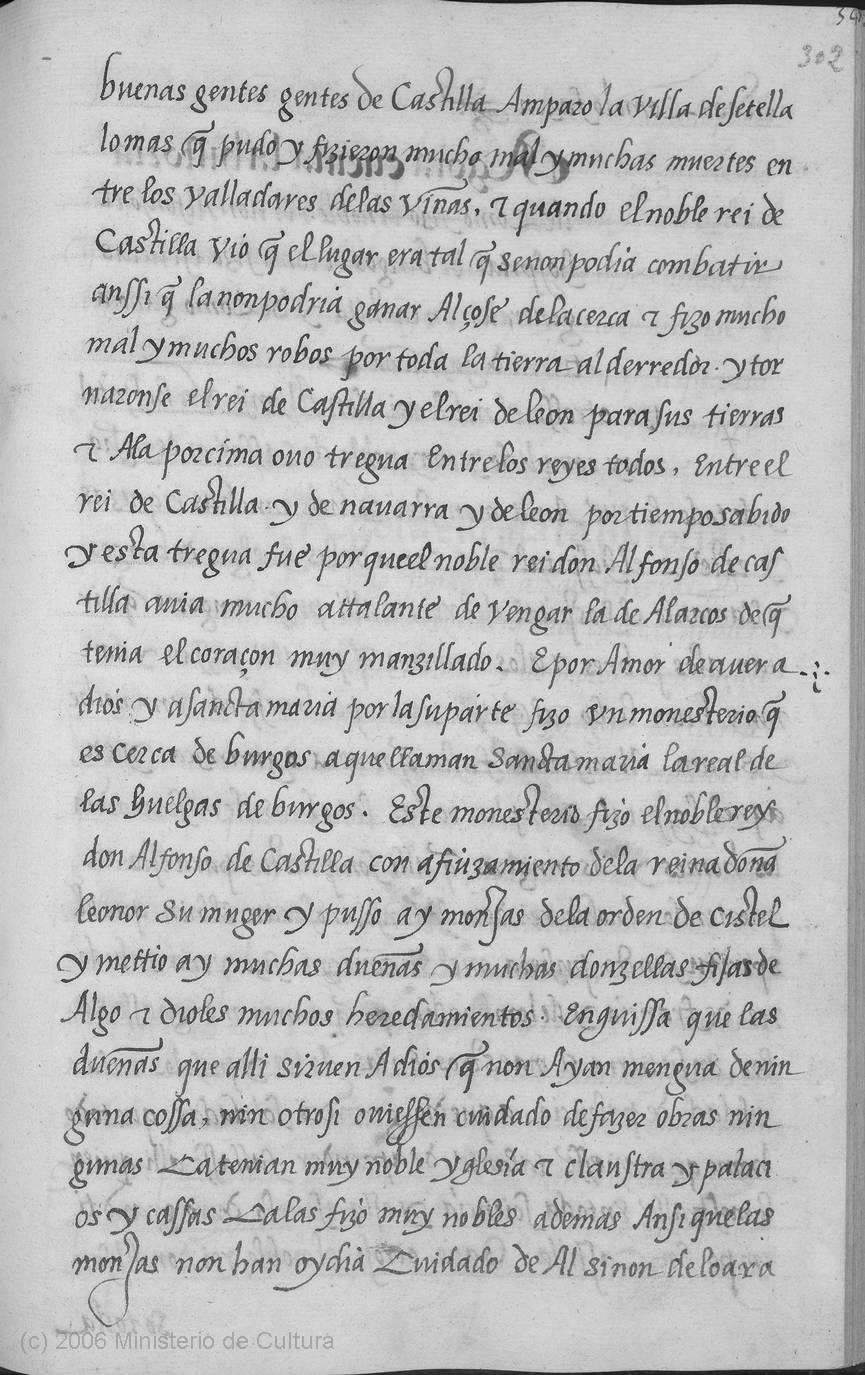 302
buenas gentes gentes de Castilla Amparo la villa de setella
lo mas q̃ pudo y fizieron mucho mal y muchas muertes en
tre los valladares delas viñas, τ quando el noble rei de
Castilla vio q̃ el lugar era tal q̃ se non podia combatir
anssi q̃ la non podria ganar Alçose dela cerca τ fizo mucho
mal y muchos robos por toda la tierra al derredor. y tor
naronse el rei de Castilla y el rei de leon para sus tierras
τ Ala porcima ovo tregua Entre los reyes todos, Entre el
rei de Castilla y de navarra y de leon por tiempo sabido
y esta tregua fue por que el noble rei don Alfonso de cas
tilla avia mucho attalante de vengar la de Alarcos de q̃
tenia el coraçon muy manzillado. E por Amor de aver a
dios y a sancta maria por la su parte fizo vn monesterio q̃
es cerca de burgos a que llaman Sancta maria la real de
las huelgas de burgos. Este monesterio fizo el noble rey
don Alfonso de Castilla con afiuzamiento dela reina doña
leonor su muger y pusso ay monjas dela orden de cistel
y mettio ay muchas dueñas y muchas donzellas fijas de
Algo τ dioles muchos heredamientos. Enguissa que las
dueñas que alli siruen A dios q̃ non Ayan mengua de nin
guna cossa, nin otrosi oviessen cuidado de fazer obras nin
gunas Ca tenian muy noble yglesia τ claustra y palaci
os y cassas Ca las fizo muy nobles ademas Ansi que las
monjas non han oy dia Cuidado de Al sinon de loar a
(c) 2006 Ministerio de Cultura